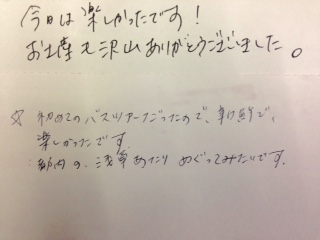 今日は楽しかったです!
お土産も沢山ありがとうございました。
☆ 初めてのバスツアーだったので、新鮮で、
楽しかったです
都内の、浅草あたり めぐってみたいです.